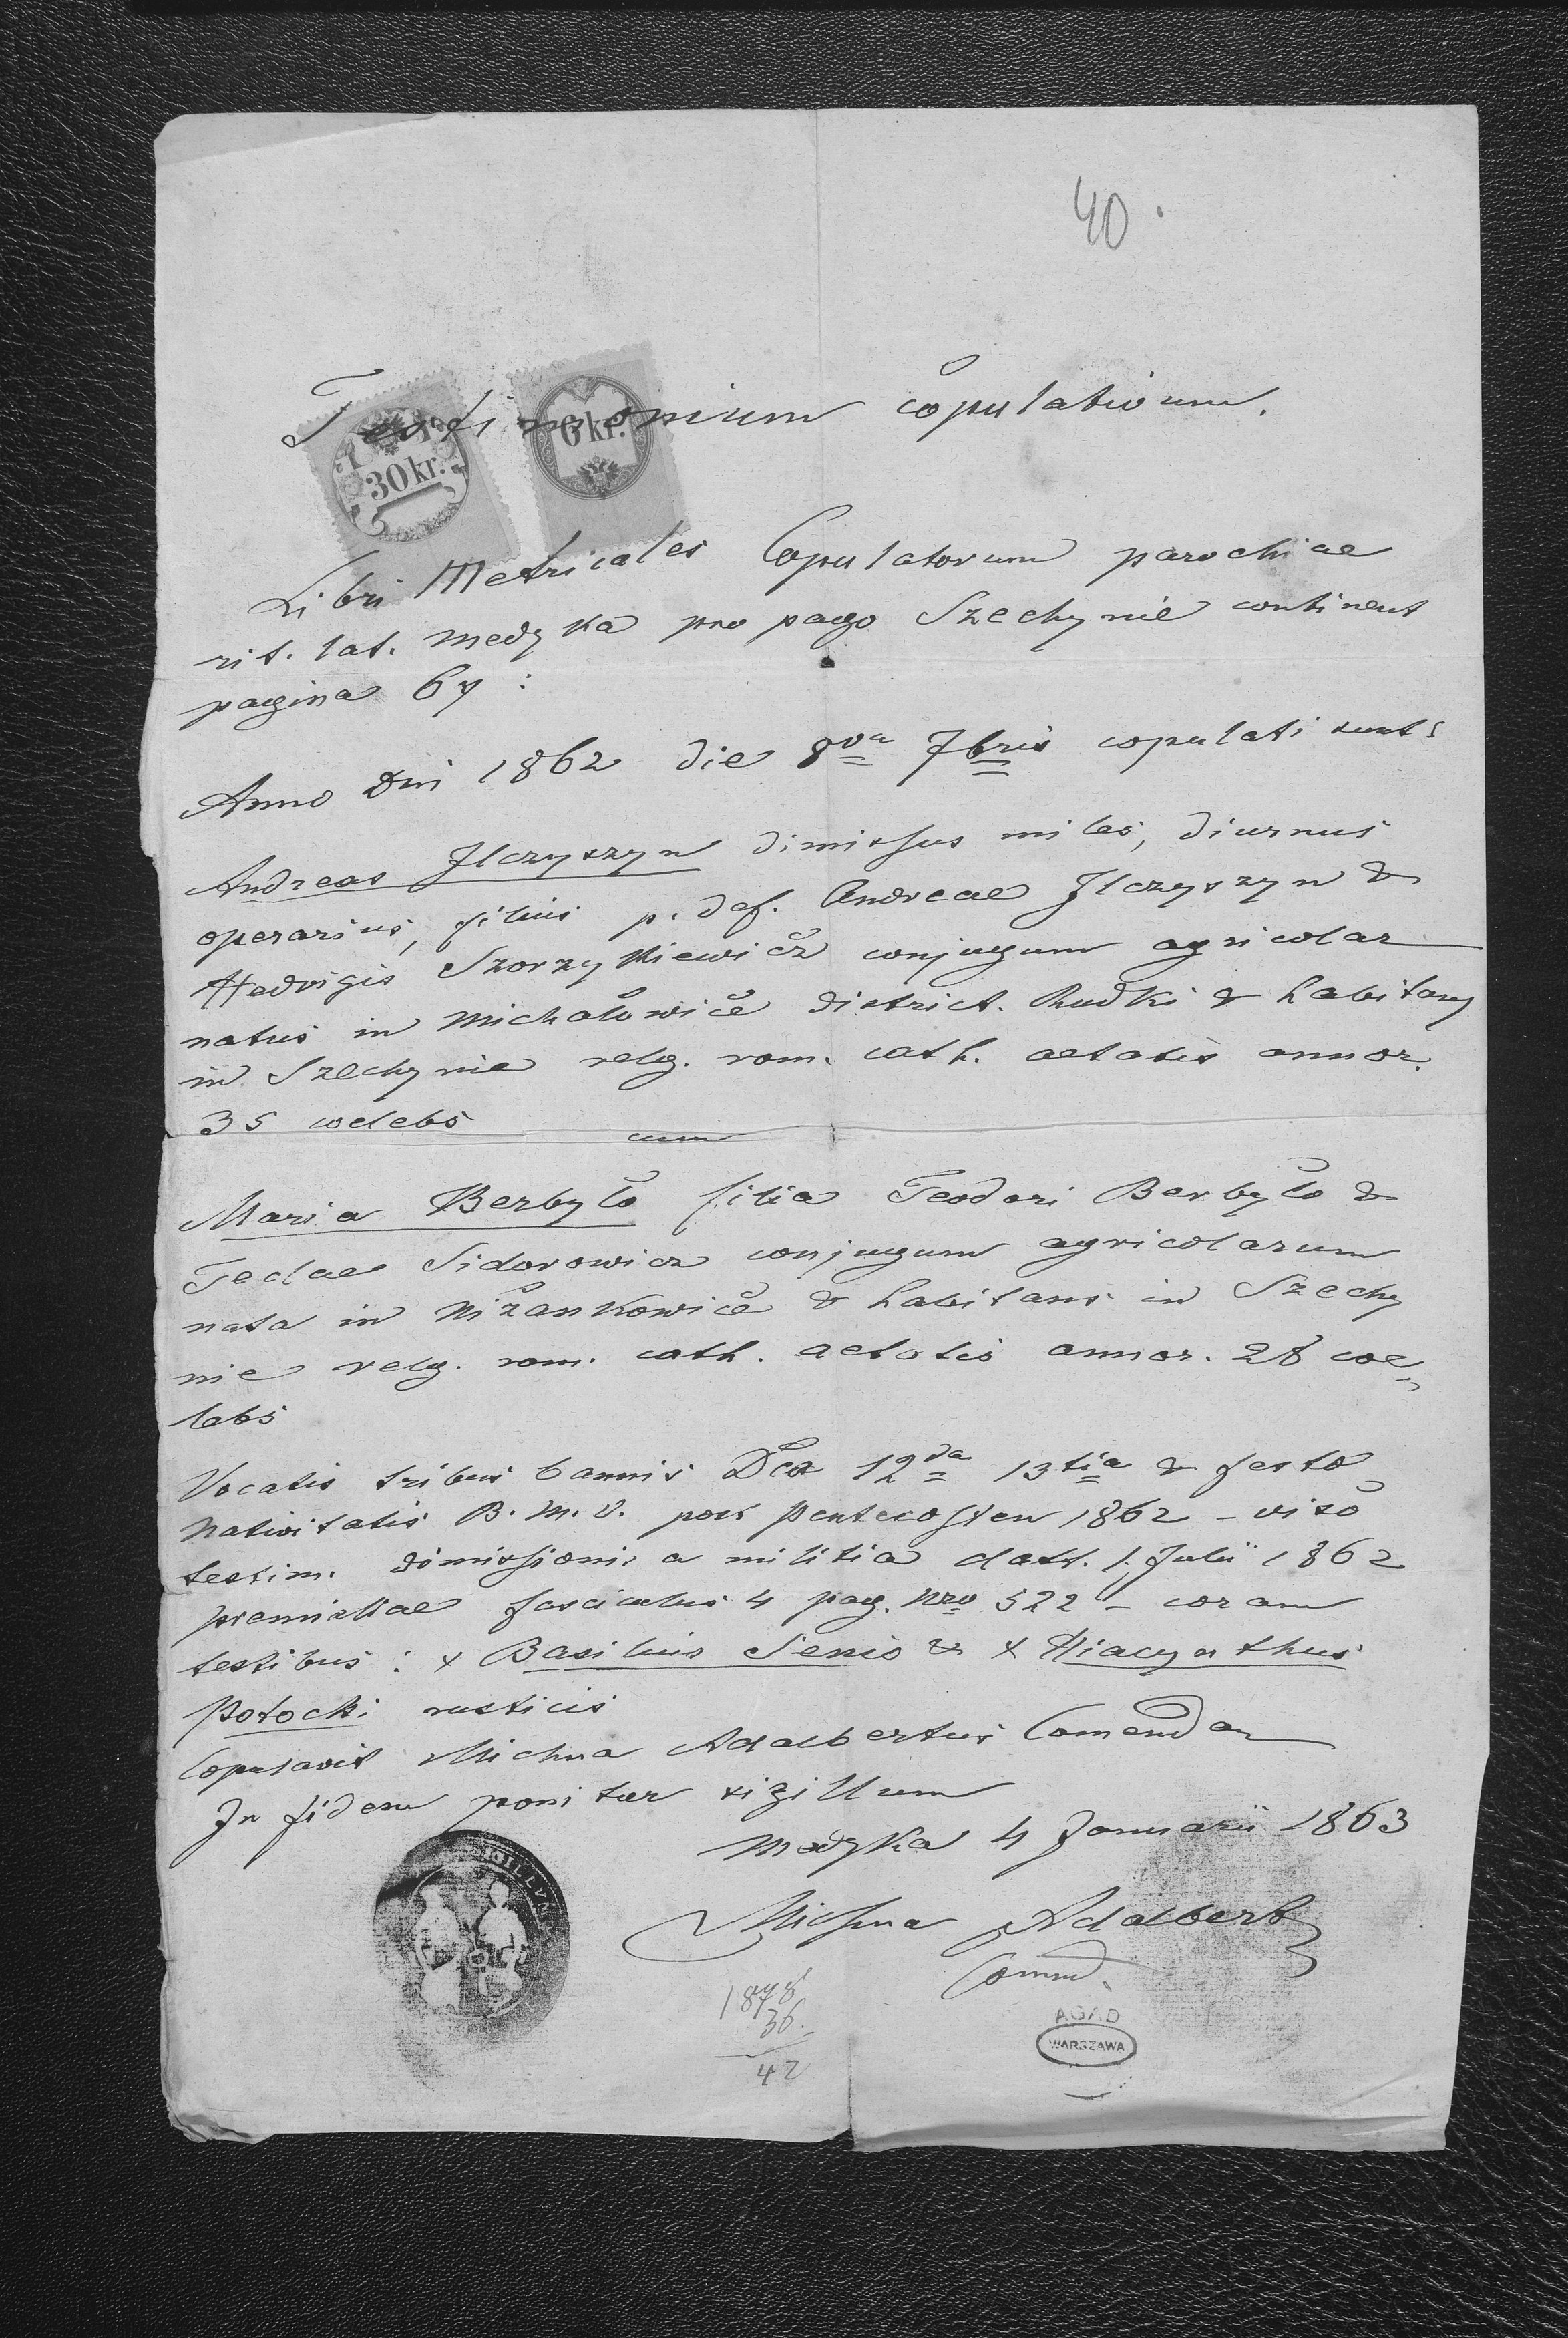 40.
Testimonium copulationum.
30 kr.
6 kr.
Libri Metricales Copulatorum parochiae
rit. lat. Medyka pro pago Szechynie continent
pagina 67:
Anno Dni 1862 die 8va 7bris copulati sunt:
Andreas Ilczyszyn dimissus miles, diurnus
operarius, filius p. def. Andreae Ilczyszyn &
Hedvigis Szorzykiewicz conjugum agricolar
natus in Michałowice district. Rudki & habitans
in Szechynie relg. rom. cath. aetatis annor.
35 coelebs
cum
Maria Berbyło filia Teodori Berbyło &
Teclae Sidorowicz conjugum agricolarum
nata in Niżankowice & habitans in Szechy
nie relg. rom. cath. aetatis annor. 28 coe„
lebs
Vocatis tribus bannis Dca 12da 13tia & festo
Nativitatis B. M. V. post Pentecosten 1862 - viso
testim. dimissionis a militia datt. 1. Julii 1862
premisliae fasciculus 4 pag. Nro 522 - coram
testibus: + Basilius Senio & + Hiacynthus
Potocki rusticis
Copulavit Michna Adalbertus Comendar
In fidem ponitur sigillum
Medyka 4 Januarii 1863
Michna Adalbert
Comend.
1878
36.
42
AGAD
WARSZAWA